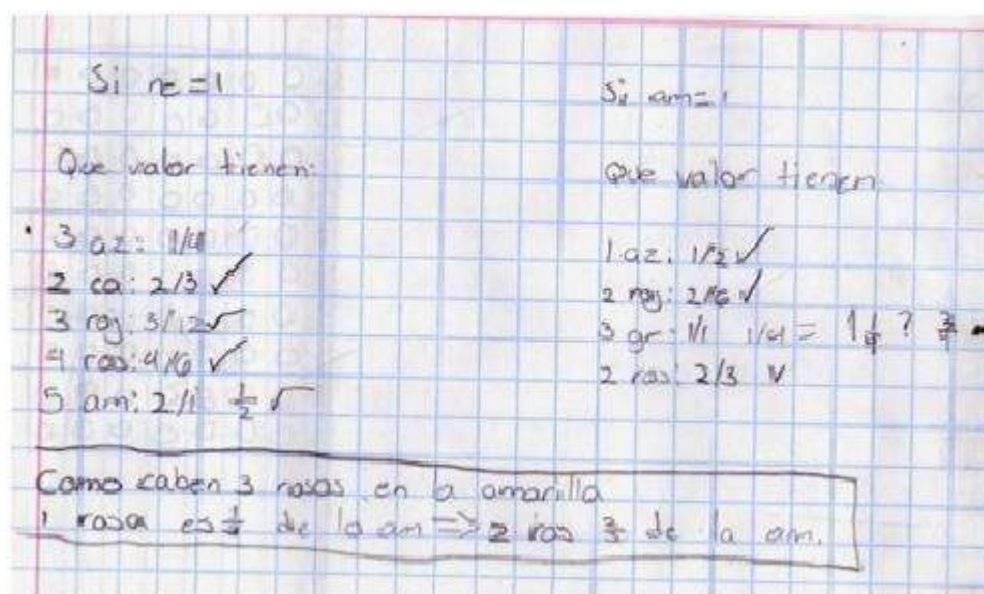 Si ne = 1
Que valor tienen:
3 az: 1/4
2 ca: 2/3 ✓
3 roj: 3/12 ✓
4 ros: 4/6 ✓
5 am: 2/1 1/2 ✓
Si am = 1
Que valor tienen
1 az: 1/2 ✓
2 roj: 2/6 ✓
3 gr: 1/1 1/4 = 1 1/4 ?
2 ros: 2/3 ✓
Como caben 3 rosas en la amarilla
1 rosa es de la am => 2 ros de la am.